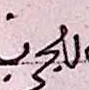 المجرب